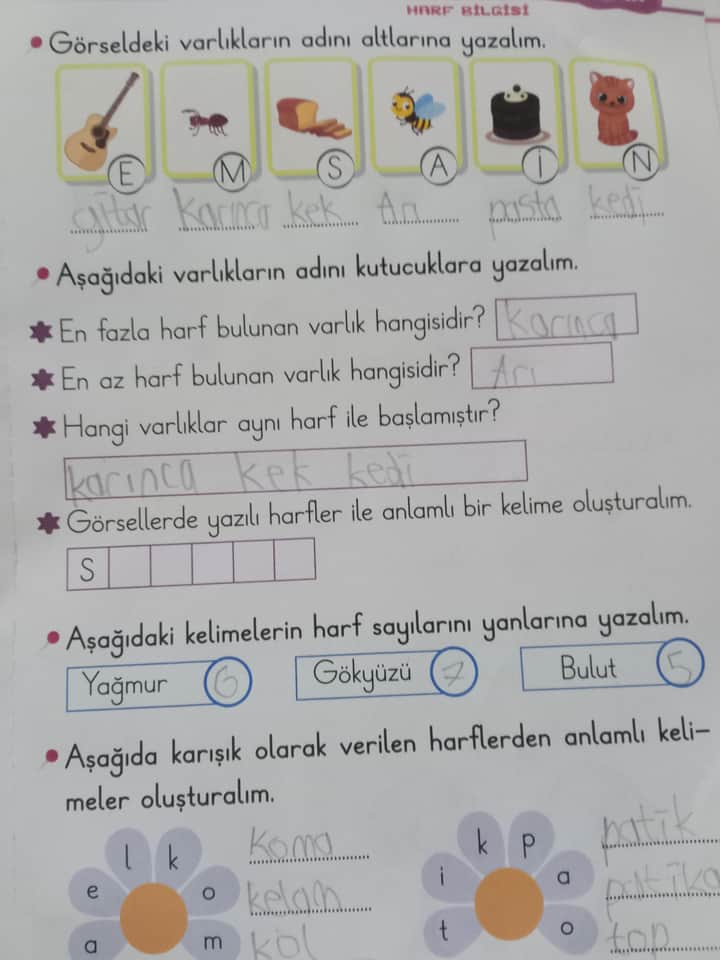 HARF BİLGİSİ
• Görseldeki varlıkların adını altlarına yazalım.
E M S A İ N
gitar karınca kek Arı pasta kedi
• Aşağıdaki varlıkların adını kutucuklara yazalım.
En fazla harf bulunan varlık hangisidir? Karınca
En az harf bulunan varlık hangisidir? Arı
Hangi varlıklar aynı harf ile başlamıştır?
karınca kek kedi
Görsellerde yazılı harfler ile anlamlı bir kelime oluşturalım.
S
• Aşağıdaki kelimelerin harf sayılarını yanlarına yazalım.
Yağmur 6 Gökyüzü 7 Bulut 5
• Aşağıda karışık olarak verilen harflerden anlamlı keli-
meler oluşturalım.
l k Koma k p patik
e o kelam i a patika
a m kol t o top